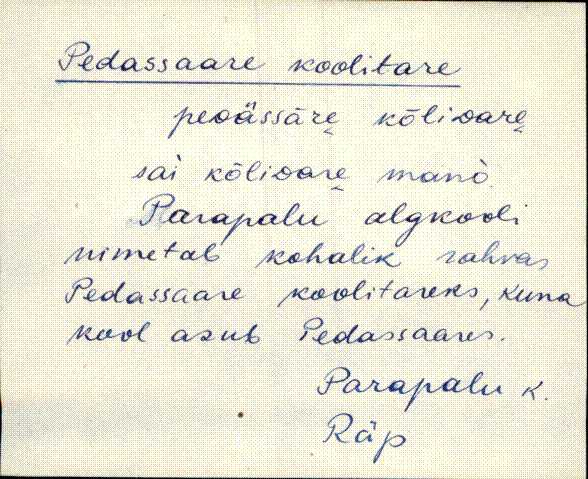 Pedassaare koolitare
peᴅässāre̮ kōliᴅare̮
sai kōliᴅare̮ manò.
Parapalu algkooli
nimetab kohalik rahvas
Pedassaare koolitareks, kuna
kool asub Pedassaares.
Parapalu k.
Räp